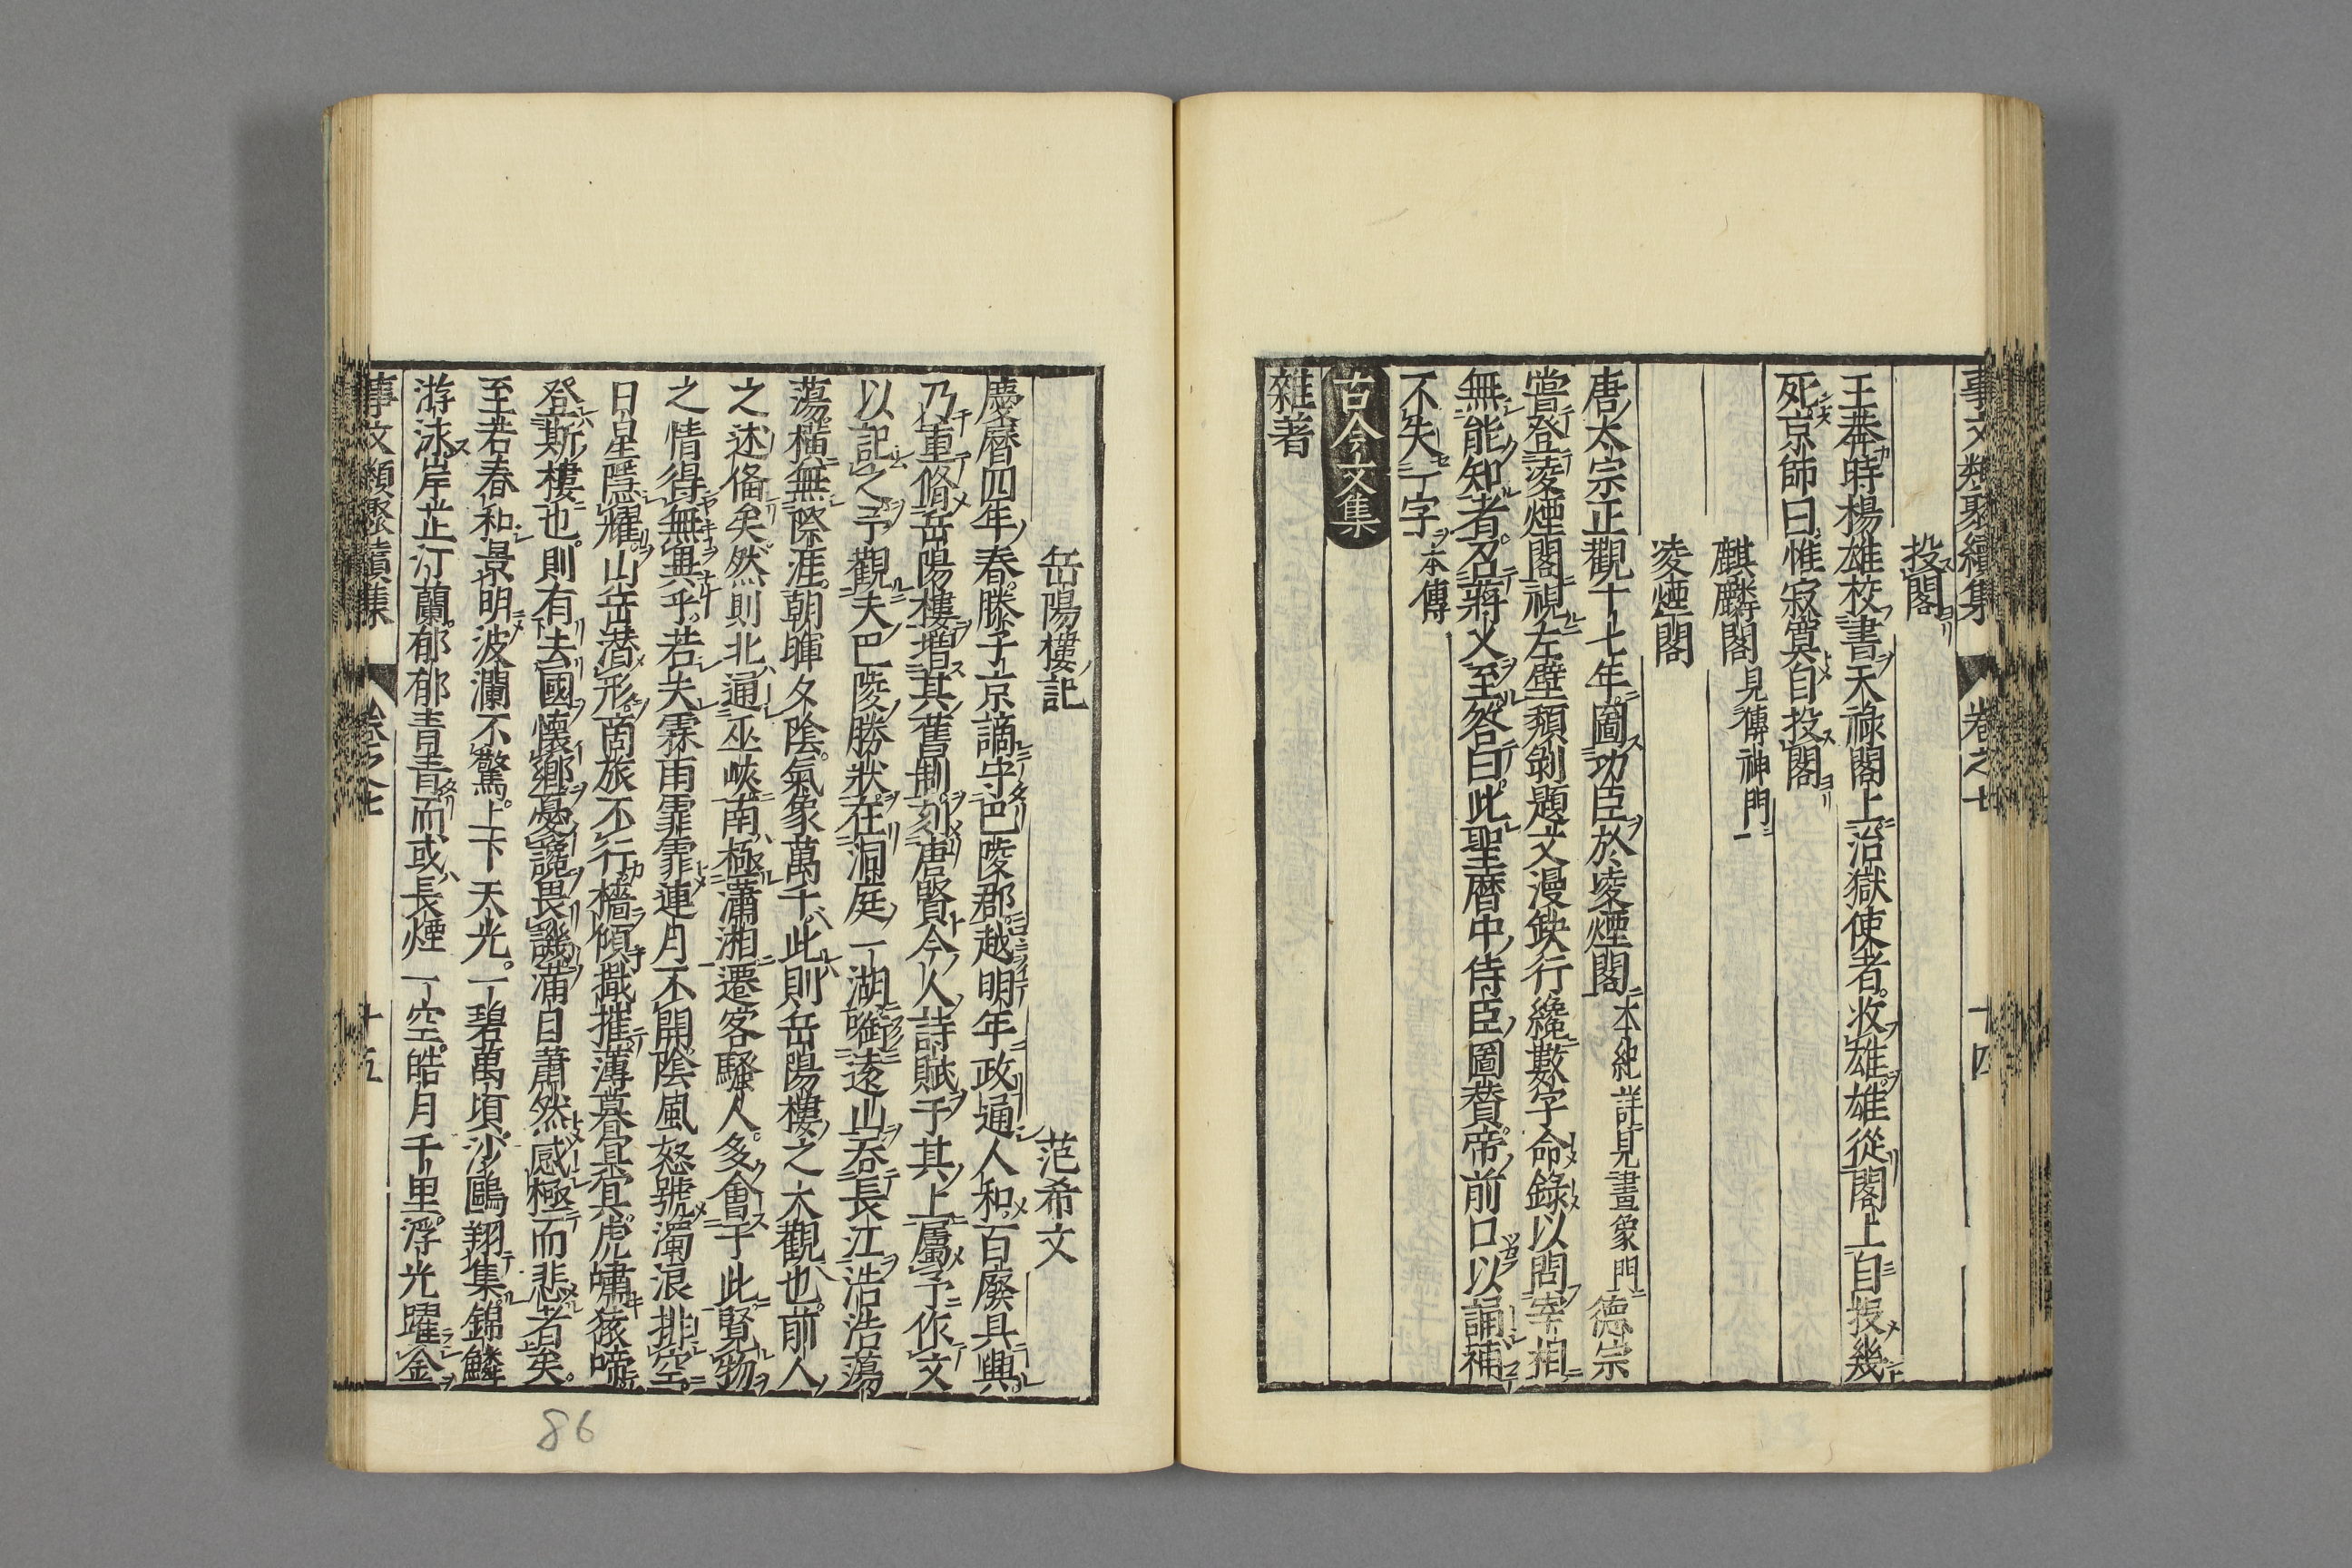 事文類聚續集 卷之七 十四
投閣
王莽時楊雄校書天祿閣上治獄使者收雄雄從閣上自投幾
死京師曰惟寂寞自投閣
麒麟閣 見傳神門
凌煙閣
唐太宗正觀十七年圖功臣於凌煙閣 本紀詳見畫象門 德宗
嘗登凌煙閣視左壁頹剝題文漫缺行纔數字命錄以問宰相
無能知者召蔣乂至答曰此聖曆中侍臣圖贊帝前口以誦補
不失一字 本傳
古今文集
雜著
岳陽樓記 范希文
慶曆四年春滕子京謫守巴陵郡越明年政通人和百廢具興
乃重脩岳陽樓增其舊制刻唐賢今人詩賦于其上屬予作文
以記之予觀夫巴陵勝狀在洞庭一湖啣遠山吞長江浩浩蕩
蕩橫無際涯朝暉夕陰氣象萬千此則岳陽樓之大觀也前人
之述俻矣然則北通巫峽南極瀟湘遷客騷人多會于此覽物
之情得無異乎若夫霖雨霏霏連月不開陰風怒號濁浪排空
日星隱耀山岳潜形商旅不行檣傾擑摧薄暮冥冥虎嘯猿啼
登斯樓也則有去國懷鄉憂讒畏譏滿目蕭然感極而悲者矣
至若春和景明波瀾不驚上下天光一碧萬頃沙鷗翔集錦鱗
游泳岸芷汀蘭郁郁青青而或長煙一空皓月千里浮光躍金
事文類聚續集 卷之七 十五
86